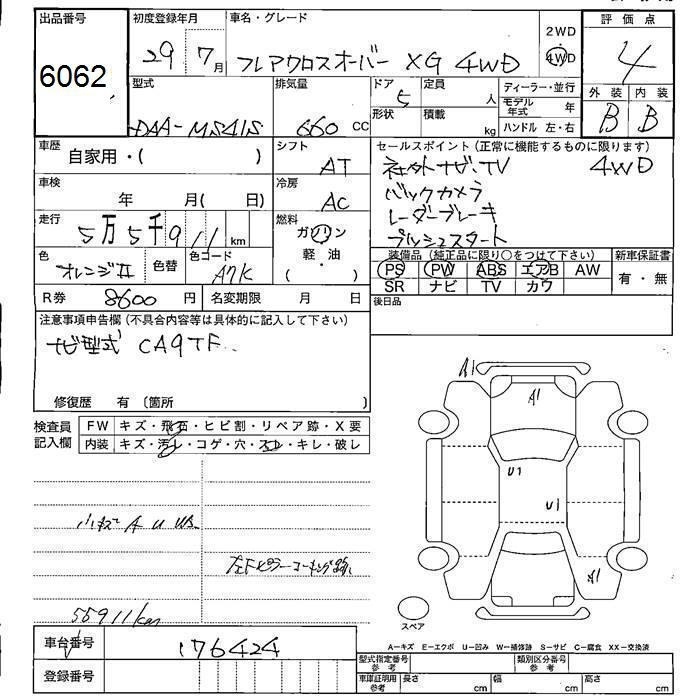 出品番号 初度登録年月 車名・グレード 評価点
6062 29 7月 フレアクロスオーバー XG 4WD 2WD 4WD 4
型式 排気量 ドア 定員 ディーラー・並行 外装 内装
DAA-MS41S 660 CC 5 人 モデル年式 年 B B
形状 積載 kg ハンドル 左・右
車歴 自家用・( ) シフト AT セールスポイント(正常に機能するものに限ります)
社外ナビ・TV 4WD
車検 年 月( 日) 冷房 AC バックカメラ
レーダーブレーキ
走行 5万5千911 km 燃料 ガソリン プッシュスタート
色 オレンジII 色替 色コード A7K 軽・油 ( )
装備品(純正品に限り○をつけて下さい) 新車保証書
PS PW ABS エアB AW 有・無
SR ナビ TV カワ
R券 8600 円 名変期限 月 日 後日品
注意事項申告欄(不具合内容等は具体的に記入して下さい)
ナビ型式 CA9TF
修復歴 有(箇所 )
検査員記入欄 FW キズ・飛石・ヒビ割・リペア跡・X要
内装 キズ・汚レ・コゲ・穴・スレ・キレ・破レ
A1
A1
U1
U1
小キズ A U
左Fピラーコーキング跡
A1
55911km
スペア
A-キズ E-エクボ U-凹み W-補修跡 S-サビ C-腐食 XX-交換済
車台番号 176424
型式指定番号参考 類別区分番号参考
登録番号 車庫証明用参考 長さ cm 幅 cm 高さ cm